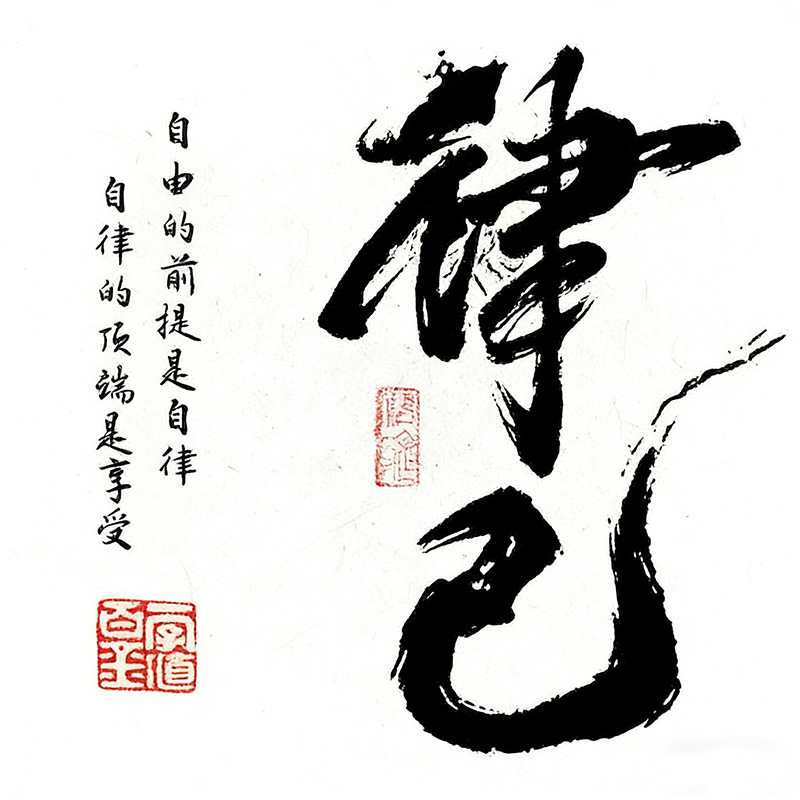 律己
自由的前提是自律
自律的顶端是享受
字值百金